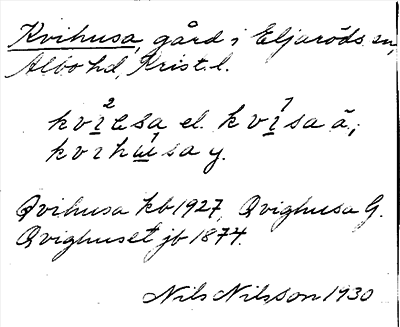 Kvihusa, gård i Eljaröds sn,
Albo hd, Krist. l.
kvi²esa el. kvi¹sa ä.;
kvihu¹sa y.
Qvihusa kb 1927, Qvighusa G.
Qvighuset jb 1874.
Nils Nilsson 1930